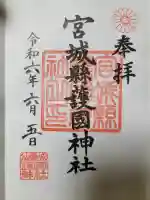 奉拝
宮城縣護國神社
令和六年六月五日